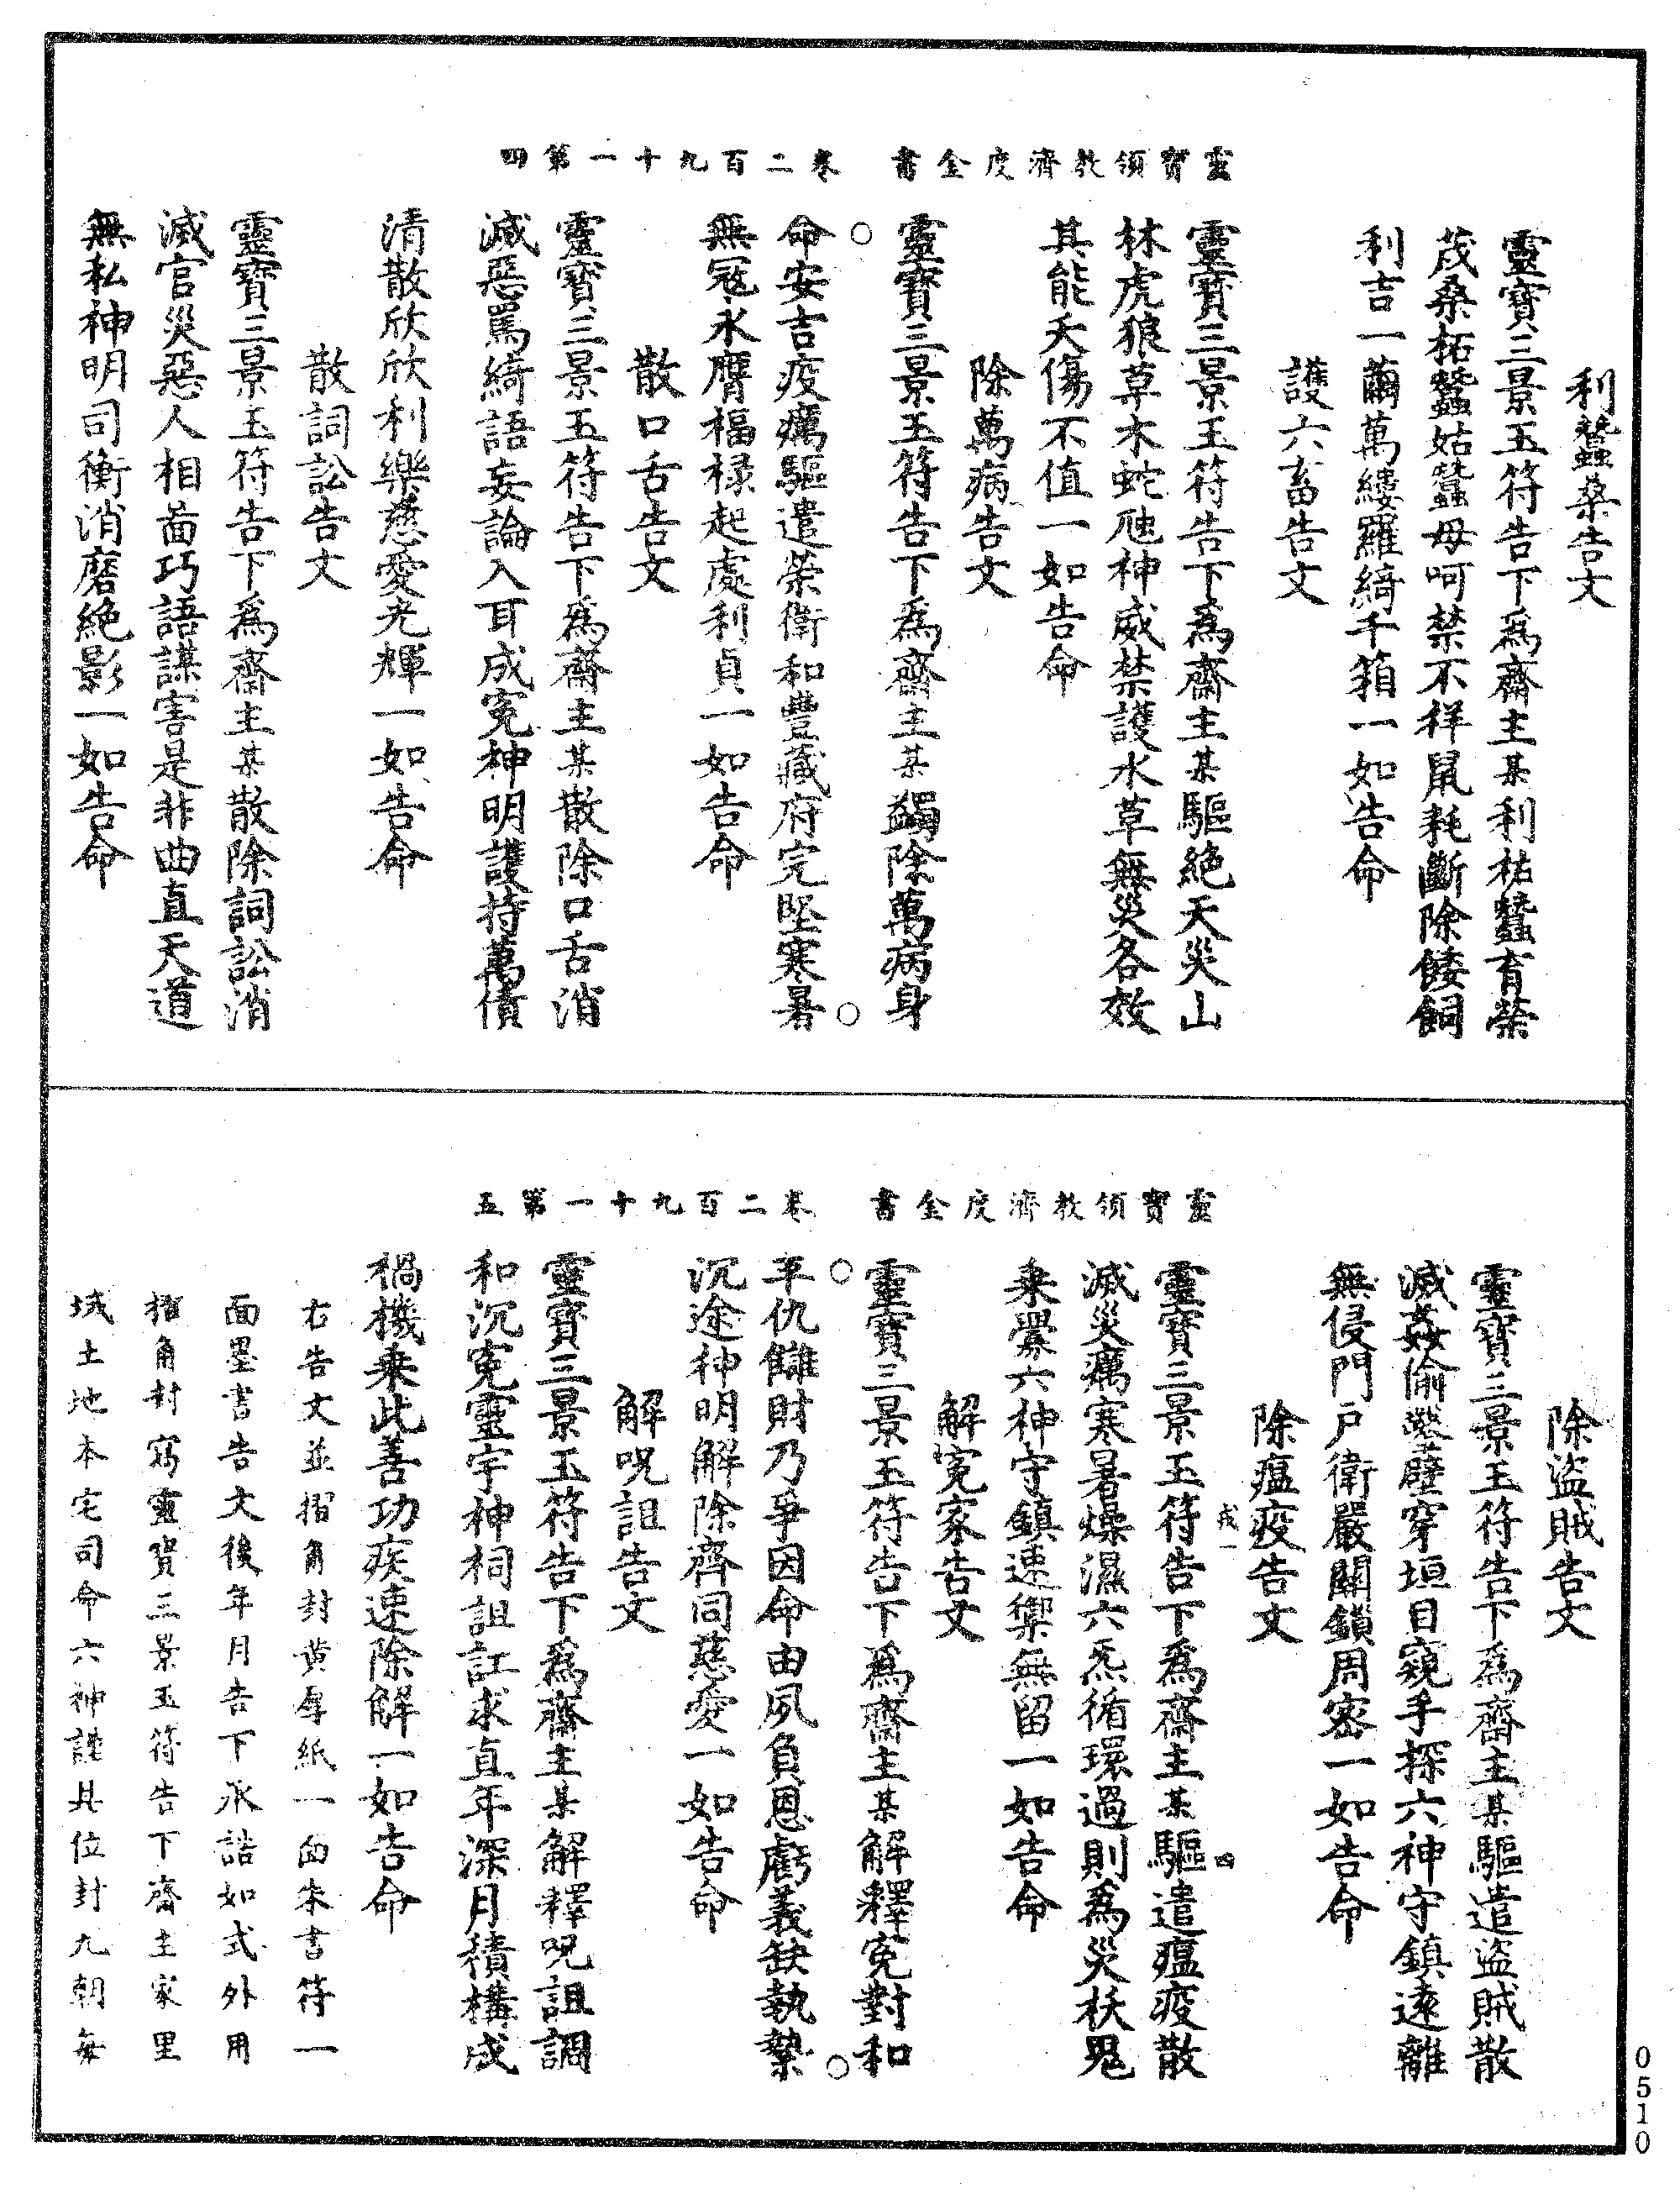 靈寶領教濟度金書　卷二百九十一第四
利蠶桑告文
靈寶三景玉符告下爲齋主某利祐蠶育榮
茂桑柘蠶姑蠶母呵禁不祥鼠耗斷除餧飼
利吉一繭萬縷羅綺千箱一如告命
護六畜告文
靈寶三景玉符告下爲齋主某驅絕天災山
林虎狼草木蛇虺神威禁護水草無災各效
其能夭傷不值一如告命
除萬病告文
靈寶三景玉符告下爲齋主某蠲除萬病身
命安吉疫癘驅遣榮衛和豐藏府完堅寒暑
無冦永膺福祿起處利貞一如告命
散口舌告文
靈寶三景玉符告下爲齋主某散除口舌消
滅惡罵綺語妄論入耳成寃神明護持萬債
清散欣欣利樂慈愛光輝一如告命
散詞訟告文
靈寶三景玉符告下爲齋主某散除詞訟消
滅官災惡人相啚巧語謀害是非曲直天道
無私神明司衡消磨絕影一如告命
靈寶領教濟度金書　卷二百九十一第五
除盜賊告文
靈寶三景玉符告下爲齋主某驅遣盜賊散
滅姦偷鑿壁穿垣目窺手探六神守鎮遠離
無侵門戶衛嚴關鎖周密一如告命
除瘟疫告文
戎一
四
靈寶三景玉符告下爲齋主某驅遣瘟疫散
滅災癘寒暑燥濕六炁循環過則爲災袄鬼
乘釁六神守鎮速禦無留一如告命
解寃家告文
靈寶三景玉符告下爲齋主某解釋寃對和
平仇讎財乃爭因命由夙負恩虧義缺執縶
沉途神明解除齊同慈愛一如告命
解呪詛告文
靈寶三景玉符告下爲齋主某解釋呪詛調
和沉寃靈宇神祠詛訌求直年深月積構成
禍機乘此善功疾速除解一如告命
右告文並摺角封黃厚紙一面朱書符一
面墨書告文後年月告下承誥如式外用
摺角封寫靈寶三景玉符告下齋主家里
域土地本宅司命六神謹其位封九朝每
0510